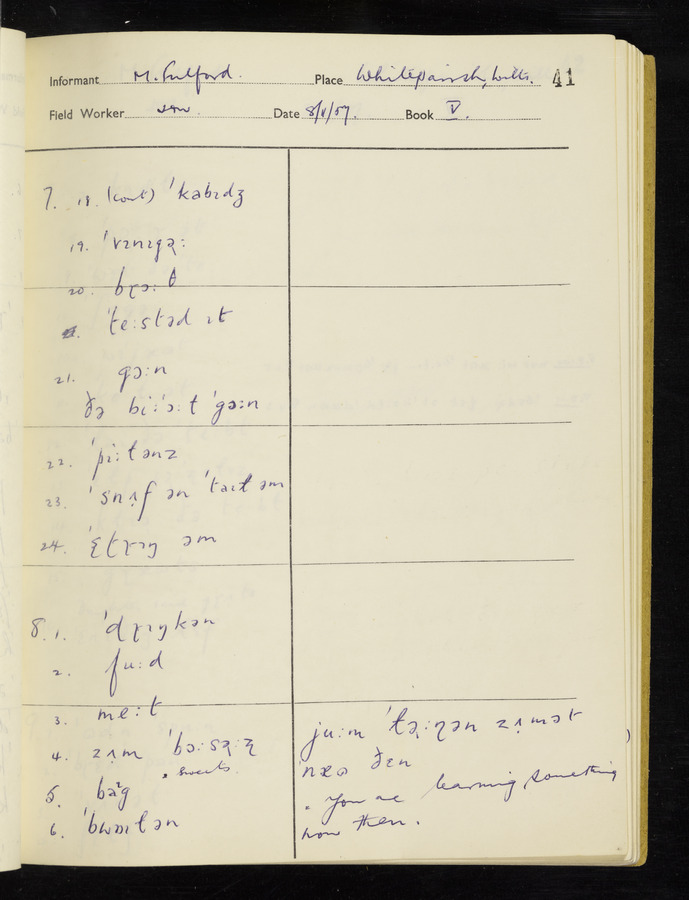 Informant M. Fulford. Place Whiteparish, Wilts. 41
Field Worker Date 8/V/57. Book V.
7. 18. (cont) ˈkabɪdʒ
19. ˈvɪnɪgəɽː
20. bɽɔːθ
ˈteːstəd ɪt
21. gɔːn
ðə biːˈɔːt ˈgɔːn
22. ˈpiːtənz
23. ˈsnɪf ən ˈtəɪt əm
24. əm
8. 1. ˈdɽɪŋkən
2. fuːd
3. meːt
4. zʌm
° sweets
5. bag
6.
juːm zʌmət
ðɛn
° You are learning something
now then.